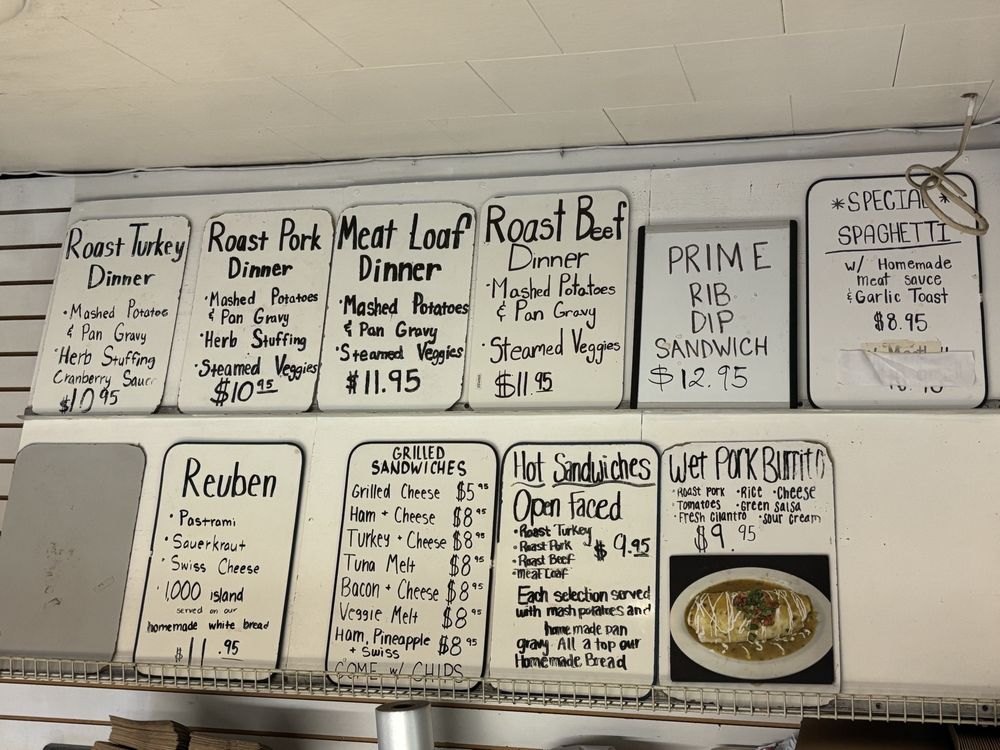 Roast Turkey
Dinner
• Mashed Potatoe
& Pan Gravy
• Herb Stuffing
Cranberry Sauce
$10.95
Roast Pork
Dinner
• Mashed Potatoes
& Pan Gravy
• Herb Stuffing
• Steamed Veggies
$10 95
Meat Loaf
Dinner
• Mashed Potatoes
& Pan Gravy
• Steamed Veggies
$11.95
Roast Beef
Dinner
• Mashed Potatoes
& Pan Gravy
• Steamed Veggies
$11.95
PRIME
RIB
DIP
SANDWICH
$12.95
*SPECIAL*
SPAGHETTI
w/ Homemade
meat sauce
& Garlic Toast
$8.95
Reuben
• Pastrami
• Sauerkraut
• Swiss Cheese
• 1,000 island
served on our
homemade white bread
$11.95
GRILLED
SANDWICHES
Grilled Cheese $5 95
Ham + Cheese $8 95
Turkey + Cheese $8 95
Tuna Melt $8 95
Bacon + Cheese $8 95
Veggie Melt $8 95
Ham, Pineapple
+ Swiss $8 95
COME W/ CHIPS
Hot Sandwiches
Open Faced
• Roast Turkey
• Roast Pork
• Roast Beef
• Meat Loaf
$9.95
Each selection served
with mash potatoes and
home made pan
gravy. All a top our
Homemade Bread
Wet Pork Burrito
• Roast Pork • Rice • Cheese
• Tomatoes • Green Salsa
• Fresh Cilantro • Sour Cream
$9.95